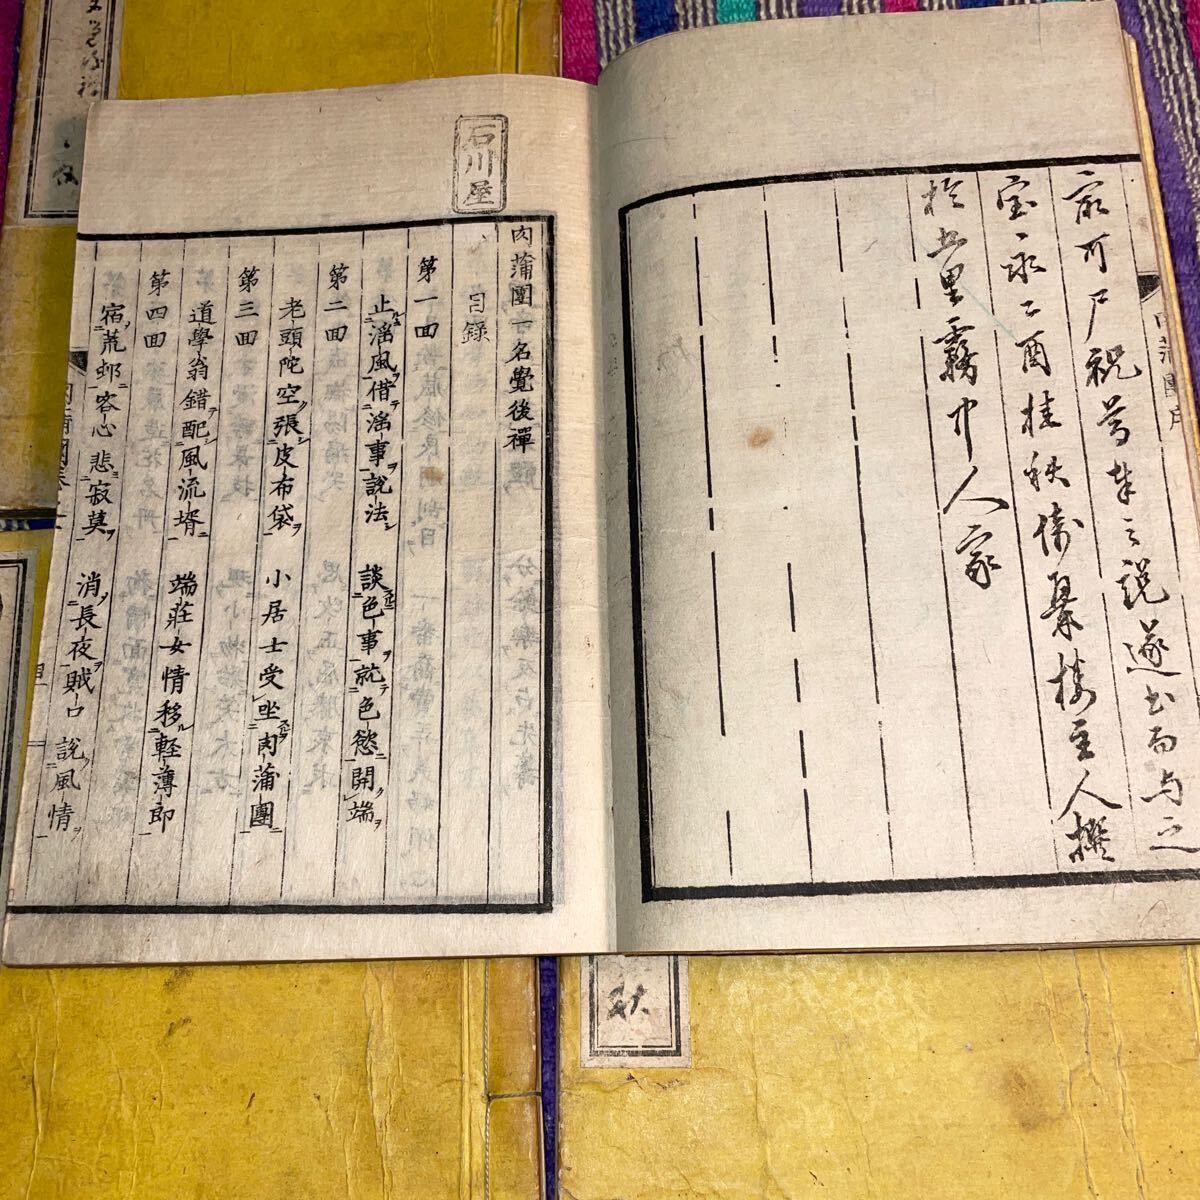 最可尸祝等書之說遂書而与之
宝永乙酉桂秋倚翠楼主人撰
於五里霧中人家
肉蒲團序
石川屋
肉蒲團一名覺後禪
目録
第一回
止淫風借淫事說法 談色事就色慾開端
第二回
老頭陀空張皮布袋 小居士受坐肉蒲團
第三回
道學翁錯配風流壻 端莊女情移軽薄郎
第四回
宿荒邨客心悲寂莫 消長夜賊口說風情
秋